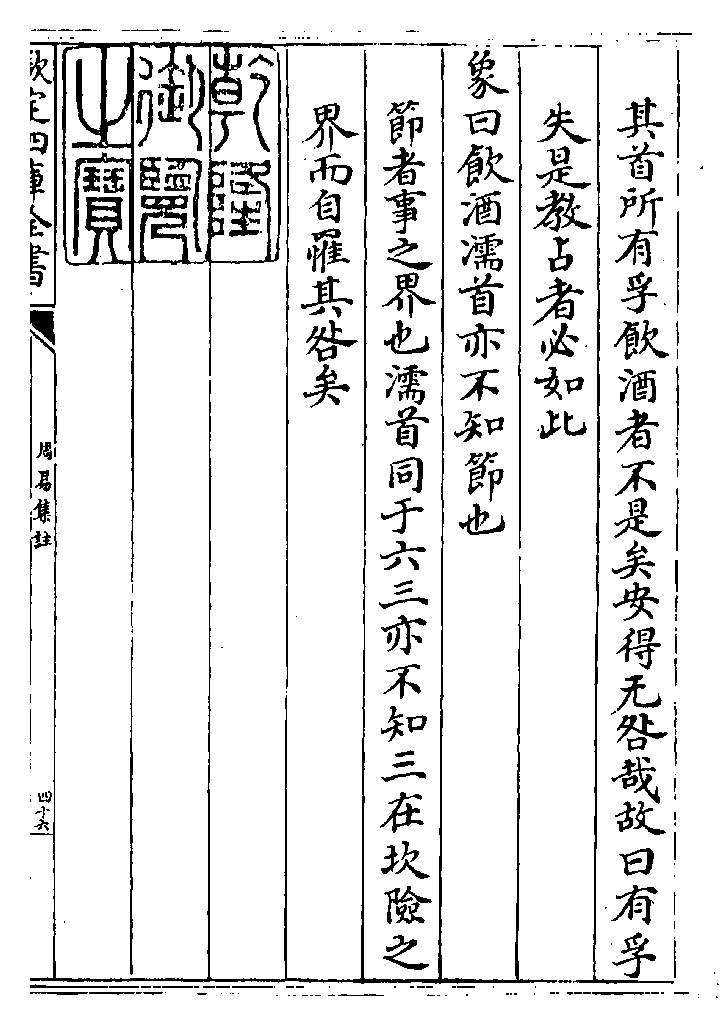 其首所有孚飲酒者不是矣安得无咎哉故曰有孚
失是教占者必如此
象曰飲酒濡首亦不知節也
節者事之界也濡首同于六三亦不知三在坎險之
界而自罹其咎矣
乾隆
御覽
之寶
欽定四庫全書
周易集註
四十六